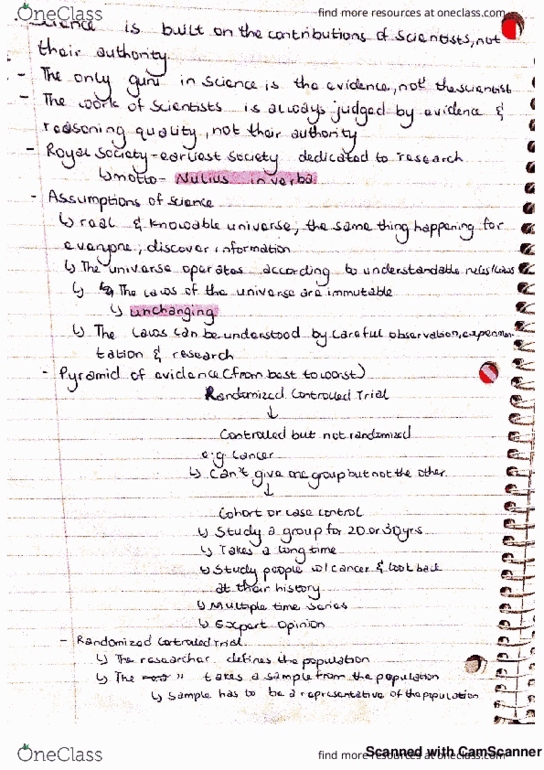 OneClass
find more resources at oneclass.com
is built on the contributions of scientists, not
their authority
- The only guru in science is the evidence, not the scientist
- The work of scientists is always judged by evidence &
reasoning quality, not their authority
- Royal Society - earliest society dedicated to research
↳ motto - Nulius in verba
- Assumptions of science
↳ real & knowable universe; the same thing happening for
everyone; discover information
↳ The universe operates according to understandable rules/laws
↳ The laws of the universe are immutable
↳ unchanging
↳ The laws can be understood by careful observation, experimen-
tation & research
- Pyramid of evidence (from best to worst)
Randomized Controlled Trial
↓
Controlled but not randomized
e.g Cancer
↳ Can't give one group but not the other
↓
Cohort or case control
↳ Study a group for 20 or 30 yrs
↳ Takes a long time
↳ Study people w/ cancer & look back
at their history
↳ Multiple time series
↳ Expert Opinion
- Randomized Controled Trial
↳ The researcher defines the population
↳ The " takes a sample from the population
↳ Sample has to be a representative of the population
OneClass
find more resources at oneclass.com
Scanned with CamScanner